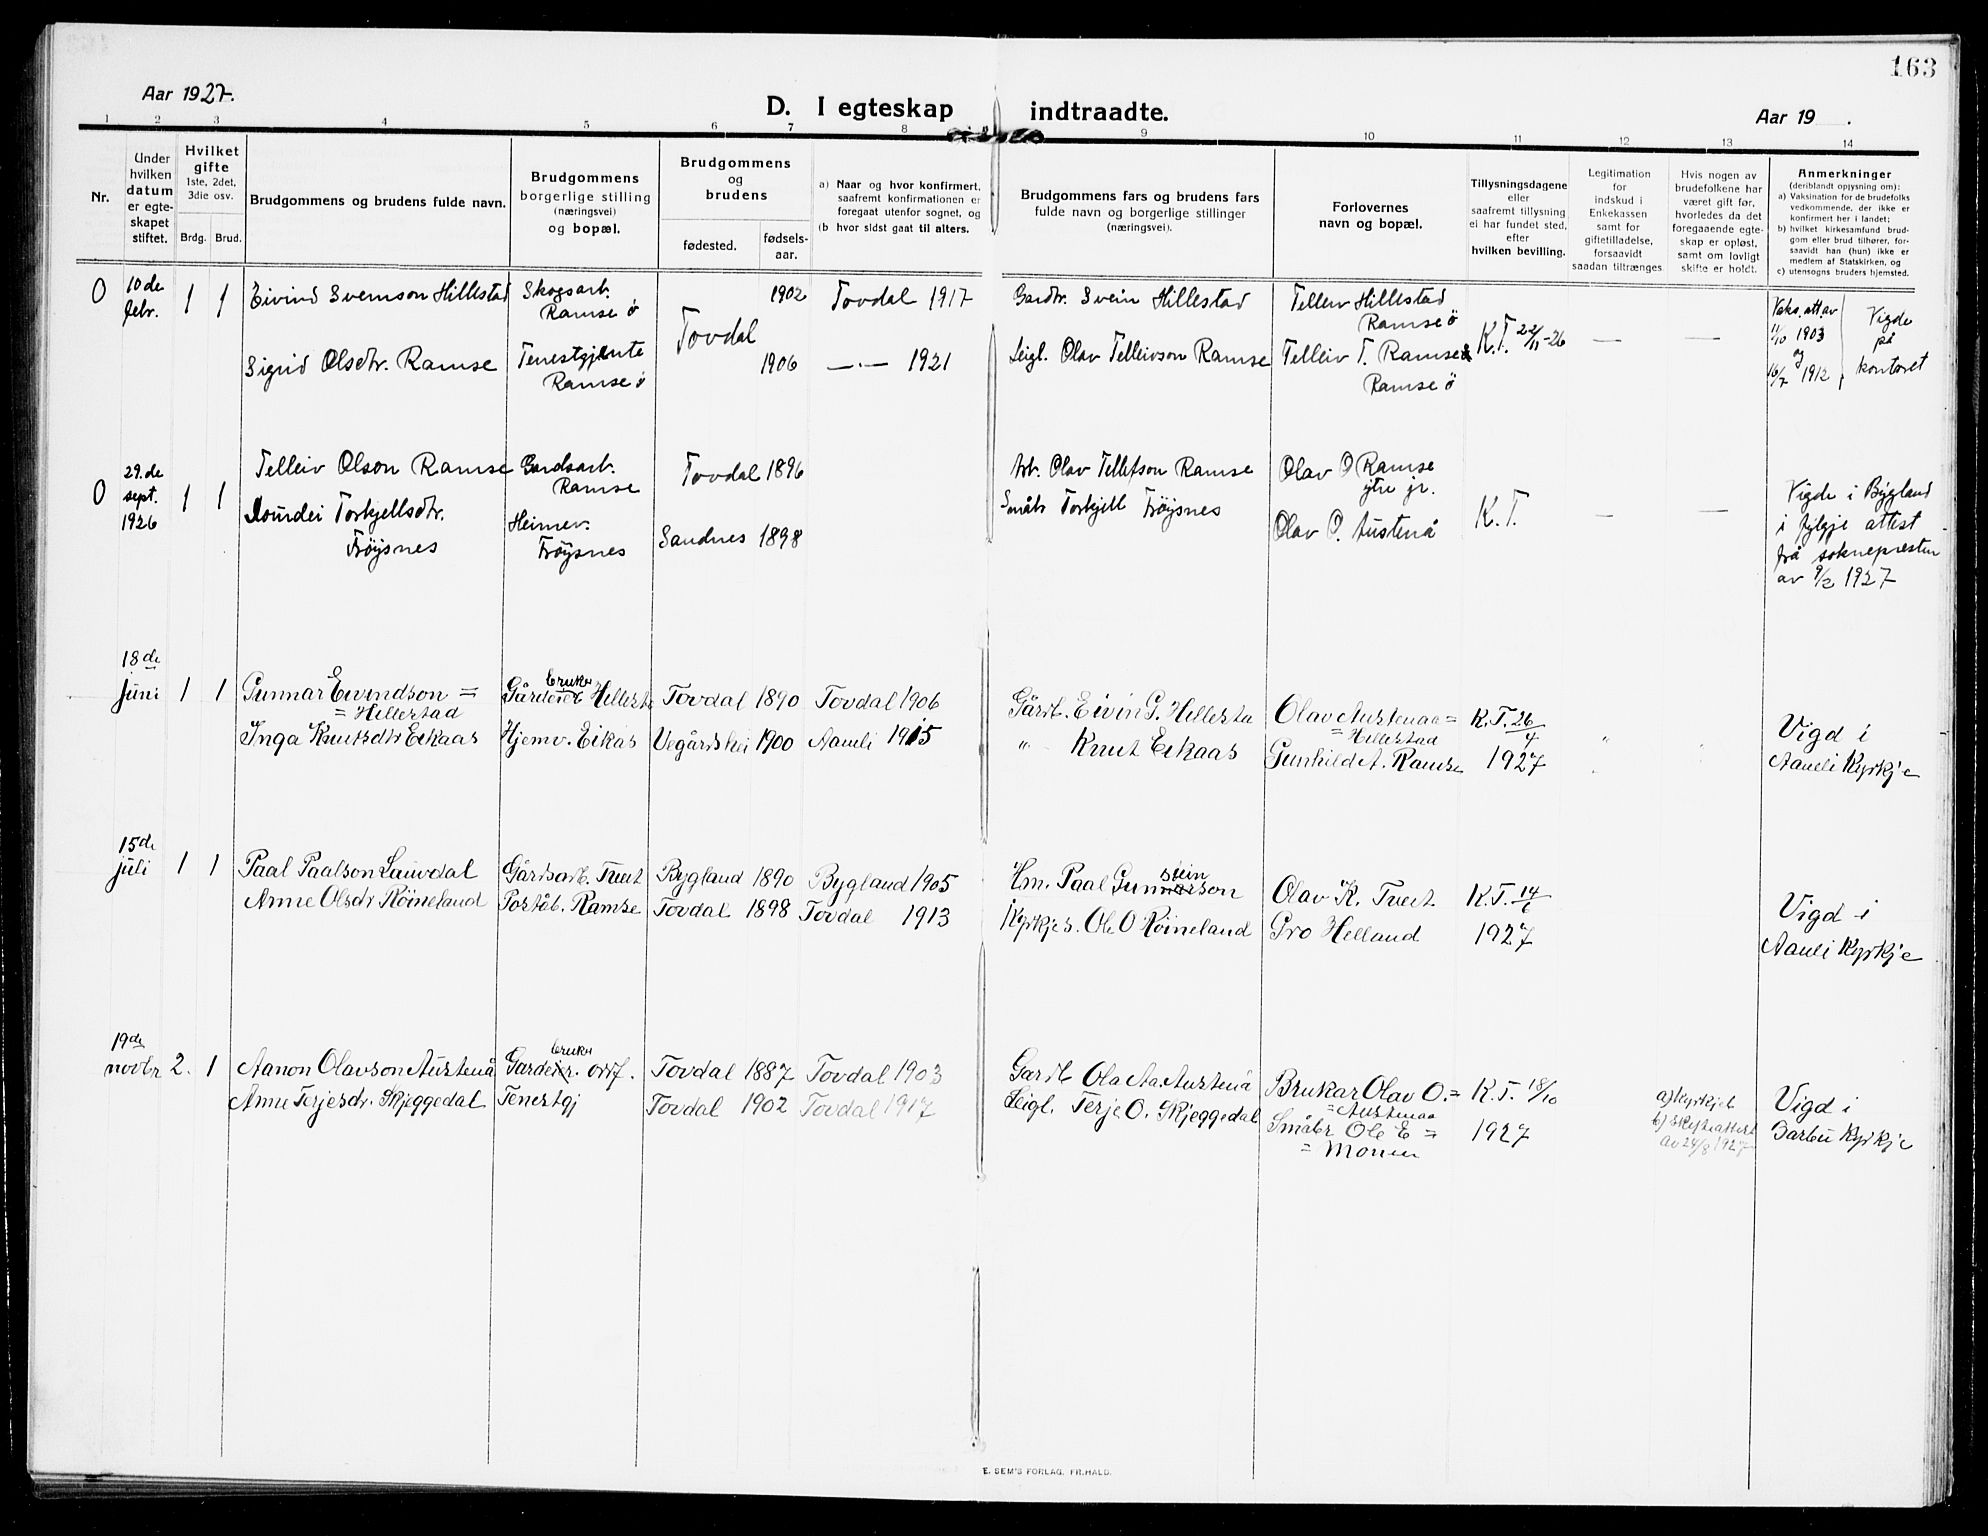 163
Aar 1927.
D. I egteskap indtraadte.
Aar 19 .
1 2 3 4 5 6 7 8 9 10 11 12 13 14
Nr.
Under hvilken datum er egteskapet stiftet.
Hvilket gifte
1ste, 2det, 3die osv.
Brdg. Brud.
Brudgommens og brudens fulde navn.
Brudgommens borgerlige stilling (næringsvei) og bopæl.
Brudgommens og brudens
fødested.
fødselsaar.
a) Naar og hvor konfirmert, saafremt konfirmationen er foregaat utenfor sognet, og
(b hvor sidst gaat til alters.
Brudgommens fars og brudens fars fulde navn og borgerlige stillinger (næringsvei).
Forlovernes navn og bopæl.
Tillysningsdagene eller saafremt tillysning ei har fundet sted, efter hvilken bevilling.
Legitimation for indskud i Enkekassen samt for giftetilladelse, forsaavidt saadan tiltrænges
Hvis nogen av brudefolkene har været gift før, hvorledes da det foregaaende egteskap er opløst, samt om lovligt skifte er holdt.
Anmerkninger
(deriblandt opjysning om):
a) Vaksination for de brudefolks vedkommende, der ikke er konfirmert her i landet;
b) hvilket kirkesamfund brudgom eller brud tilhører, forsaavidt han (hun) ikke er medlem af Statskirken, og
c) utensogns bruders hjemsted.
0 10de febr. 1 1 Eivind Sveinson Hillestad Skogsarb. Ramse ö Tovdal 1902 Tovdal 1917 Gardbr. Svein Hillestad Telleiv Hillestad Ramse ö K.T. 22/11-26 — — Vaks.att.av 11/10 1903 og 16/7 1912 Vigde på kontoret
Sigrid Olsdtr. Ramse Tenestgjente Ramse ö 1906 —"— 1921 Leigl. Olav Telleivson Ramse Telleiv T. Ramse Ramse ö
0 29.de sept. 1926 1 1 Telleiv Olson Ramse Gardsarb. Ramse Tovdal 1896 Arb. Olav Tellefson Ramse Olav O Ramse ytre jr. K.T. — — Vigde i Bygland i fylgje attest frå soknepresten av 9/2 1927
Torkjellsdtr. Frøysnes Heimev. Frøysnes Sandnes 1898 Småbr Torkjell Frøysnes Olav O. Austenå
18de juni 1 1 Gunnar Eivindson = = Hillestad Gårdbruker Hillesta Tovdal 1890 Tovdal 1906 Gårdb. Eivin G. Hillesta Olav Austenaa = = Hillestad K.T. 26/4 1927 " Vigd i Aamli Kyrkje
Inga Knutsdtr Eikaas Hjemv. Eikås Vegårdshei 1900 Aamli 1915 " Knut Eikaas Gunhild A. Ramse
15de juli 1 1 Paal Paalson Lauvdal Gårdsarb. Tveit Bygland 1890 Bygland 1905 Hm. Paal Gunnsteinson Olav K. Tveit K.T. 14/6 1927 Vigd i Aamli Kyrkje
Anne Olsdtr Röineland Poståb. Ramse Tovdal 1898 Tovdal 1913 Kyrkjes. Ole O Röineland Gro Helland
19de novbr 2. 1 Aanon Olavson Austenå Gardbruker. Tovdal 1887 Tovdal 1903 Gardb Ola Aa. Austenå Brukar Olav O. = = Austenaa K.T. 18/10 1927 a) Kyrkjeb b) Skifteattest av 24/8 1927 Vigd i Barbu Kyrkje
Anne Terjesdr. Skjeggedal Tenestgj Tovdal 1902 Tovdal 1917 Leigl. Terje O. Skjeggedal Småbr Ole E = = Monen
E. SEM'S FORLAG, FR.HALD.